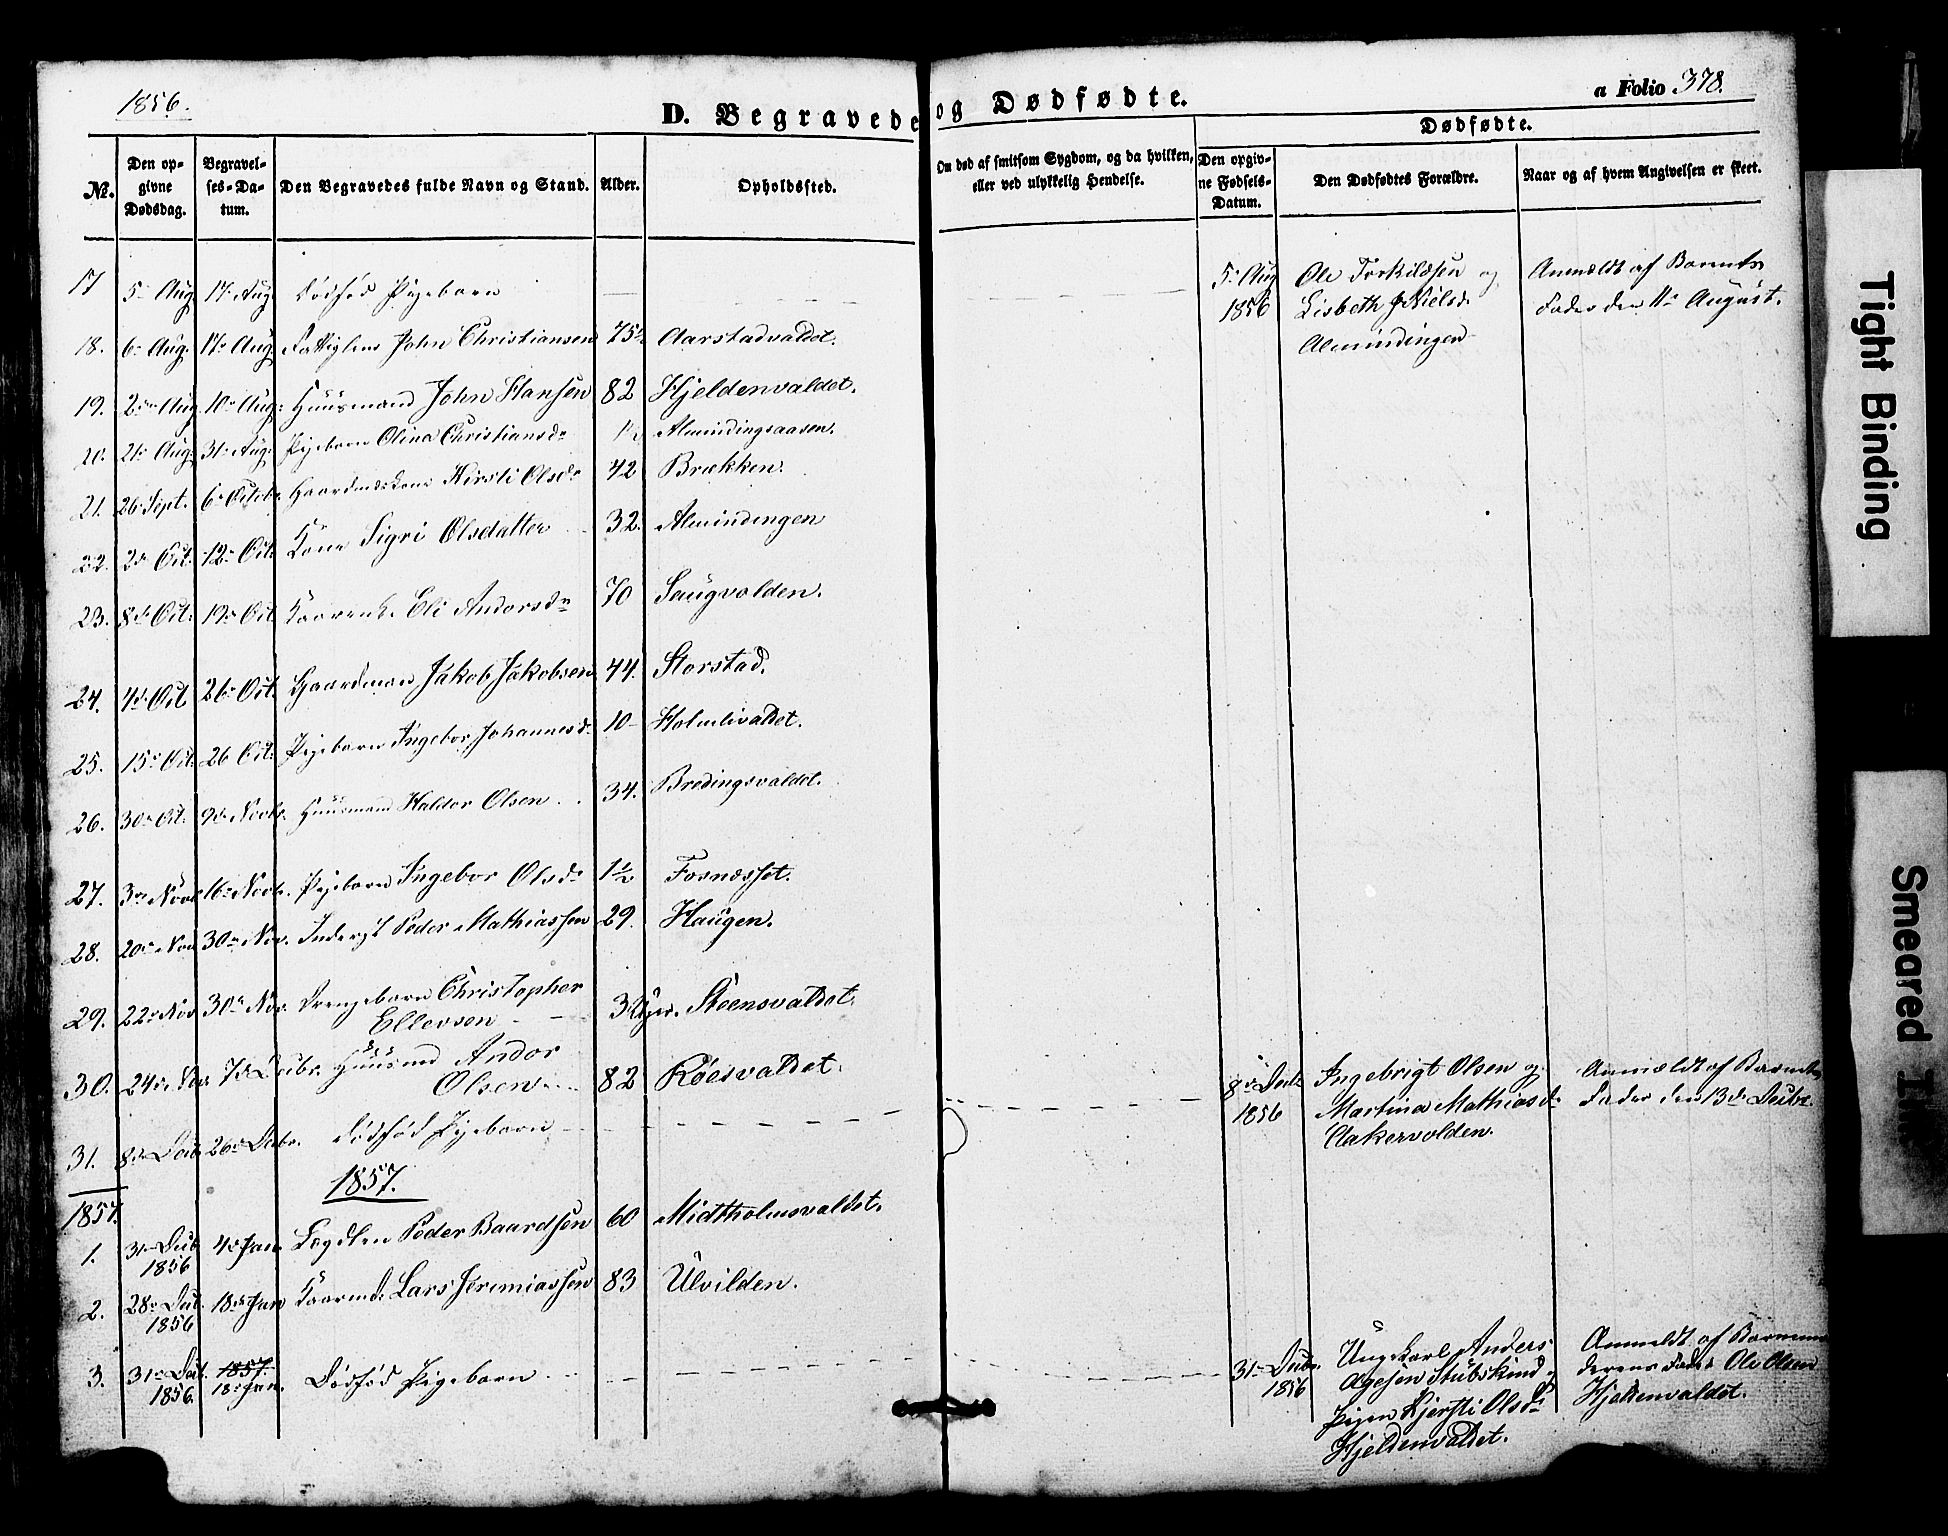 1856.
D. Begravede og Dødfødte.
a Folio 378.
№.
Den opgivne Dødsdag.
Begravelses-Datum.
Den Begravedes fulde Navn og Stand.
Alder.
Opholdssted.
Om død af smitsom Sygdom, og da hvilken, eller ved ulykkelig Hendelse.
Dødfødte.
Den opgivne Fødsels-Datum.
Den Dødfødtes Forældre.
Naar og af hvem Angivelsen er skeet.
17 5te Aug 17 Aug Dødfød Pigebarn
5te Aug 1856
Ole Torkildsen og
Lisbeth Nielsd.
Almindingen
Anmældt af Barnets
Fader den 11te August.
18. 6te Aug. 17de Aug. John Christiansen 75 Aarstadvaldet.
19. 2den Aug. 10de Aug. Huusmand John Hansen 82 Hjeldenvaldet.
20. 21de Aug. 31te Aug. Pigebarn Olina Christiansdr Almindingsaasen.
21. 26 Sept. 6te Octobr Gaardmandskone Kirsti Olsdr 42 Brækken.
22. 2den Oct. 12te Oct. Kone Sigri Olsdatter 32. Almindingen
23. 8de Oct. 19de Oct. Eli Andorsdr 70 Saugvolden.
24. 4de Oct 26de Oct. Gaardman Jakob Jakobsen 44. Storstad.
25. 15de Oct. 26 Oct. Pigebarn Ingebor Johannesdr 10 Holmlivaldet.
26. 30te Oct. 9de Novbr. Huusmand Haldor Olsen 34. Bredingsvaldet.
27. 3die Novbr 16de Novbr. Pigebarn Ingebor Olsdr 1½ Fosnæsset.
28. 20de Nov 30te Nov. Inderst Peder Mathiassen 29. Haugen.
29. 22de Nov 30te Nov. Drengebarn Christopher
Ellevsen 3 Uger. Steensvaldet.
30. 24de Nov 7de Decbr. Huusmd Andor
Olsen 82 Röesvaldet.
31. 8de Decbr 26de Decbr. Dødfød Pigebarn
8de Decbr 1856
Ingebrigt Olsen og
Martina Mathiasdr
Aakervolden.
Anmældt af Barnets
Fader den 13de Decbr.
1857.
1857.
1. 31te Decbr 1856 4de Jan. Lægdlem Peder Baardsen 60 Midtholmsvaldet.
2. 28de Decbr. 1856 18de Jan Kaarmd. Lars Jeremiassen 83 Ulvilden.
3. 31te Decbr. 1856. 1857 18de Jan. Dødfød Pigebarn
31te Decbr. 1856
Ungekarl Anders
Agesen Stubskind og
Pigen Kjersti Olsdr
Hjeldenvaldet.
Anmeldt af Barnemo-
derens Fader Ole Olsen
Hjeldenvaldet.
Tight Binding
Smeared Ink